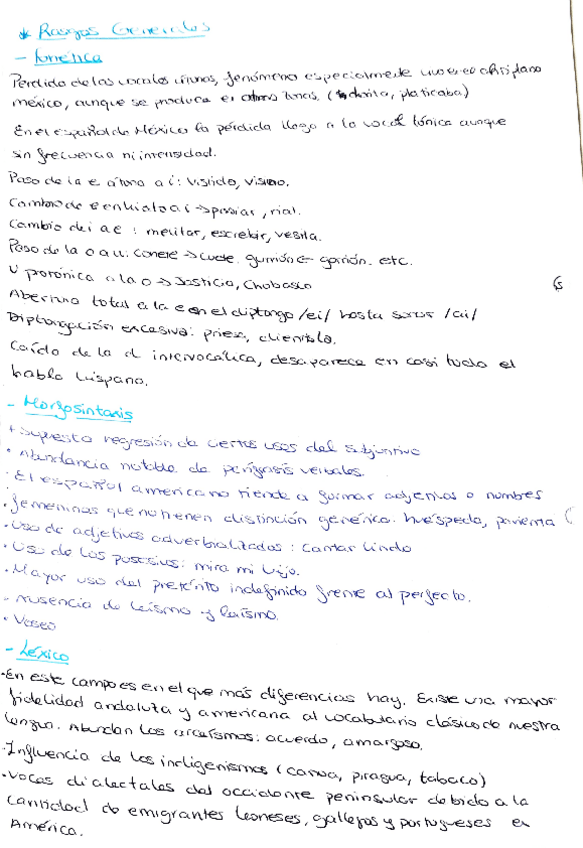 * Rasgos Generales
- Fonética
Perdida de las vocales átonas, fenómeno especialmente vivo en el altiplano
méxico, aunque se produce en otras zonas. (platicaba)
En el español de México la pérdida llega a la vocal tónica aunque
sin frecuencia ni intensidad.
Paso de la e átona a i: vistido, visino.
Cambio de e en hiato a i → pasiar, rial.
Cambio de i a e: melitar, escrebir, vesita.
Paso de la o a u: conete → cuete. gurrión ← gorrión. etc.
U protónica a la o → Josticia, Chobasco
Abertura total a la e en el diptongo /ei/ hasta sonar /ai/
Diptongación excesiva: priesa, dientista.
Caída de la d intervocálica, desaparece en casi todo el
habla hispano.
- Morfosintaxis
+ Supuesta regresión de ciertos usos del subjuntivo
· Abundancia notable de perífrasis verbales.
· El español americano tiende a formar adjetivos o nombres
· femeninos que no tienen distinción genérica. huéspeda, parienta (
· Uso de adjetivos adverbializados: cantar lindo
· Uso de los posesivos: mira mi hijo.
· Mayor uso del pretérito indefinido frente al perfecto.
- Ausencia de leísmo y laísmo.
· Voseo
- Léxico
·En este campo es en el que más diferencias hay. Existe una mayor
fidelidad andaluza y americana al vocabulario clásico de nuestra
lengua. Abundan los arcaísmos: acuerdo, amargoso.
·Influencia de los indigenismos (canoa, piragua, tabaco)
·Voces dialectales del occidente peninsular debido a la
cantidad de emigrantes leoneses, gallegos y portugueses en
América.